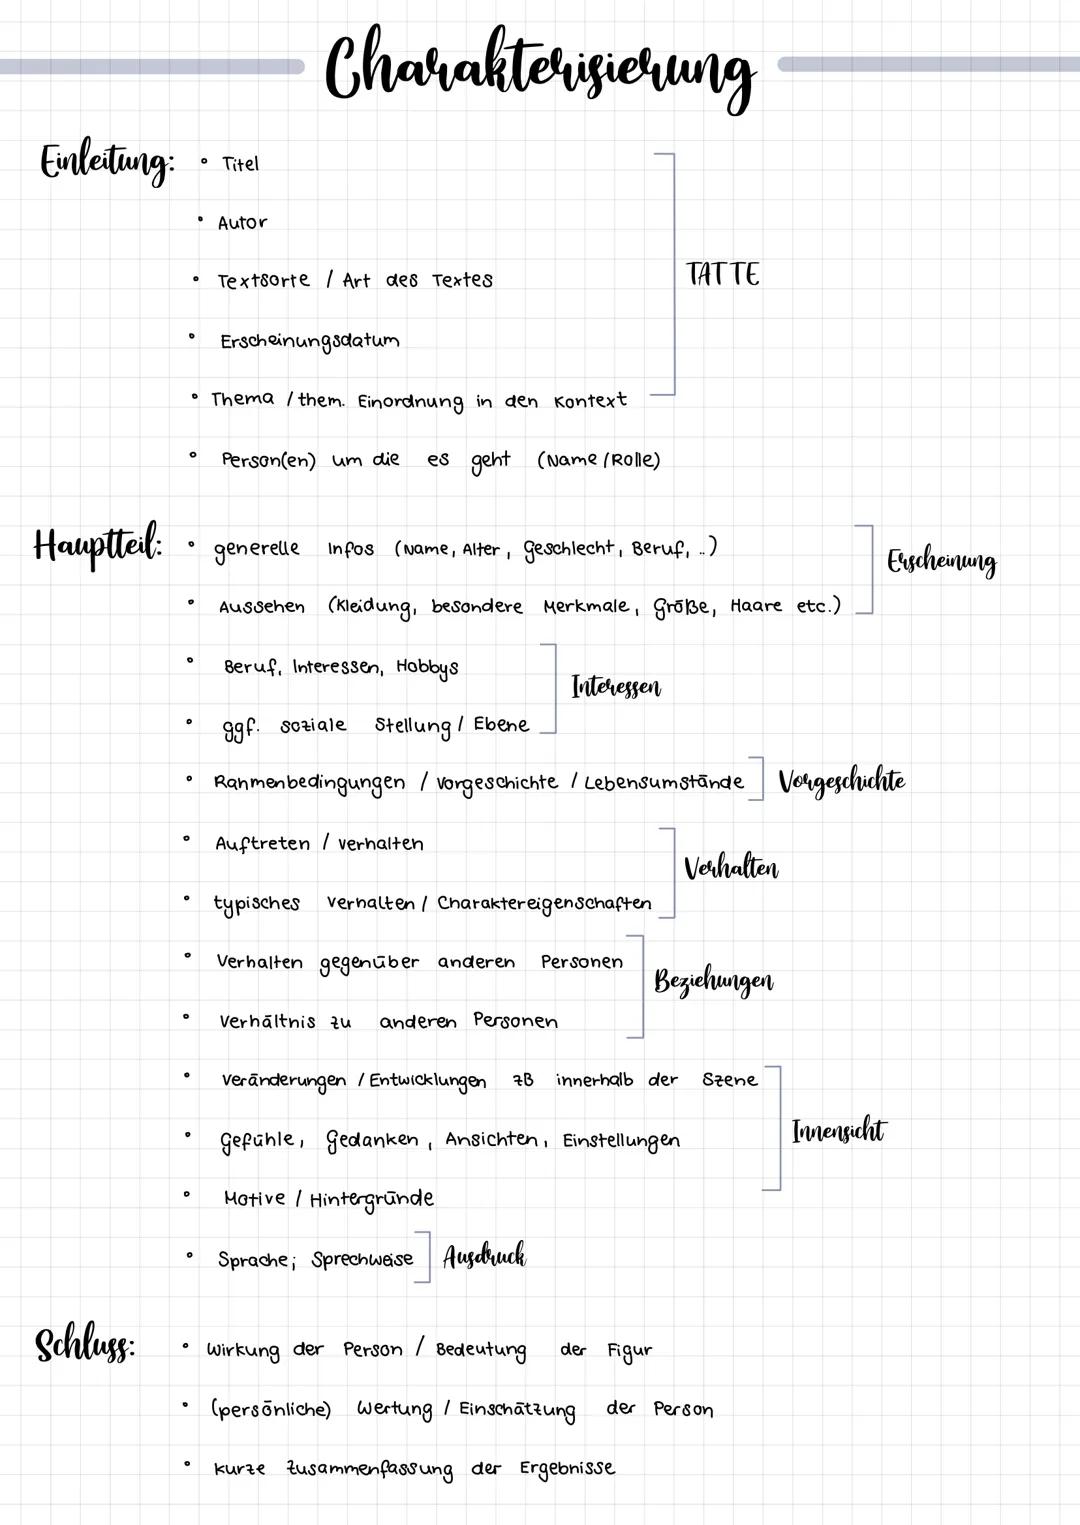 Charakterisierung
Einleitung: • Titel
• Autor
• Textsorte / Art des Textes
TATTE
• Erscheinungsdatum
• Thema / them. Einordnung in den Kontext
• Person(en) um die es geht (Name/Rolle)
Hauptteil: • generelle Infos (Name, Alter, Geschlecht, Beruf, ..)
Erscheinung
• Aussehen (Kleidung, besondere Merkmale, Größe, Haare etc.)
• Beruf, Interessen, Hobbys
Interessen
• ggf. soziale Stellung / Ebene
• Rahmenbedingungen / Vorgeschichte / Lebensumstände
Vorgeschichte
• Auftreten / Verhalten
Verhalten
• typisches Verhalten / Charaktereigenschaften
• Verhalten gegenüber anderen Personen
Beziehungen
• Verhältnis zu anderen Personen
• Veränderungen / Entwicklungen zB innerhalb der Szene
• Gefühle, Gedanken, Ansichten, Einstellungen
Innensicht
• Motive / Hintergründe
• Sprache; Sprechweise
Ausdruck
Schluss: • Wirkung der Person / Bedeutung der Figur
• (persönliche) Wertung / Einschätzung der Person
• kurze Zusammenfassung der Ergebnisse